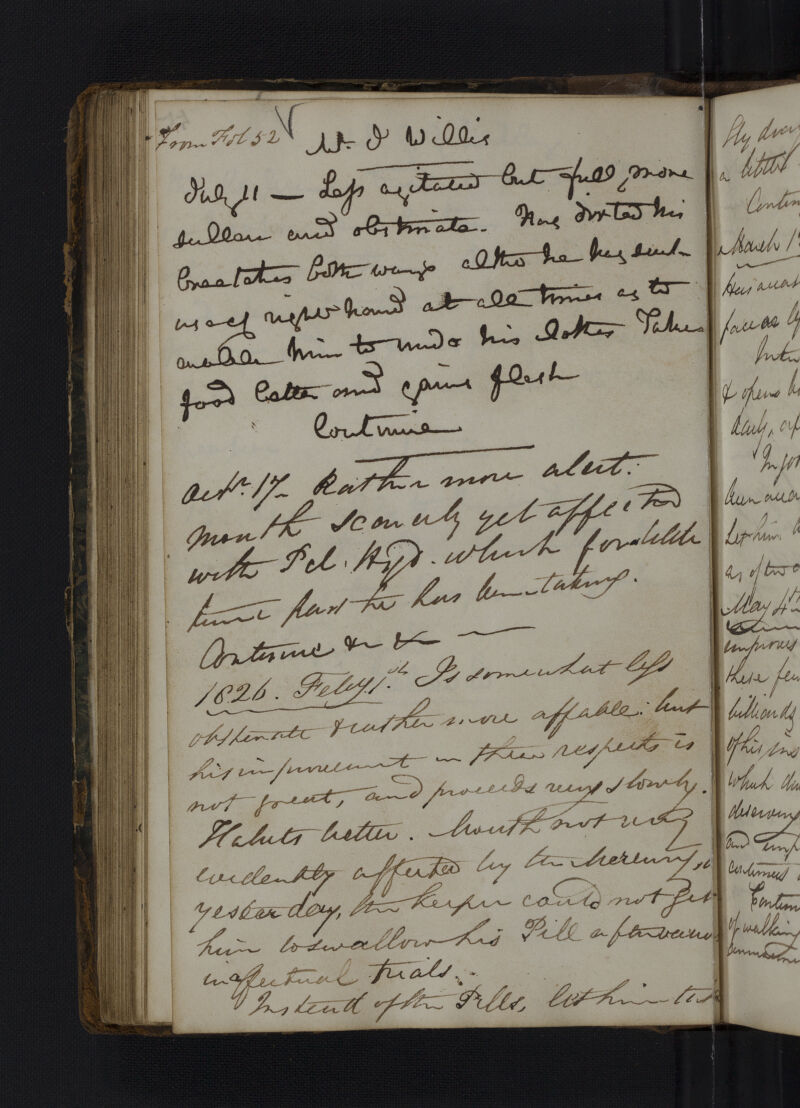 From Fol 52
Mr. J Willis
July 11 — Less agitated but full more
sullen and obstinate. Has dirted his
breetches both ways altho he has
use of right hand at all times as to
enable him to undo his clothes Takes
food better and gains flesh
Continue
Octr. 17 – Rather more alert:
mouth scarcely yet affected
with Pil. Hyd. which for a little
time past he has been taking.
Continue &c &c —
1826. Feby 1st. Is somewhat less
obstinate & rather more affable: but
his improvement in these respects is
not great, and proceeds very slowly.
Habits better. Mouth not very
evidently affected by the Mercury,
yesterday, the keeper could not get
him to swallow his Pill after various
ineffectual trials.
Instead of the Pills, let him
a little
March 1
face as
& opens
daily,
been
Let him
as often
May 4th
improves
these few
billiards
of his
which
and
of walking